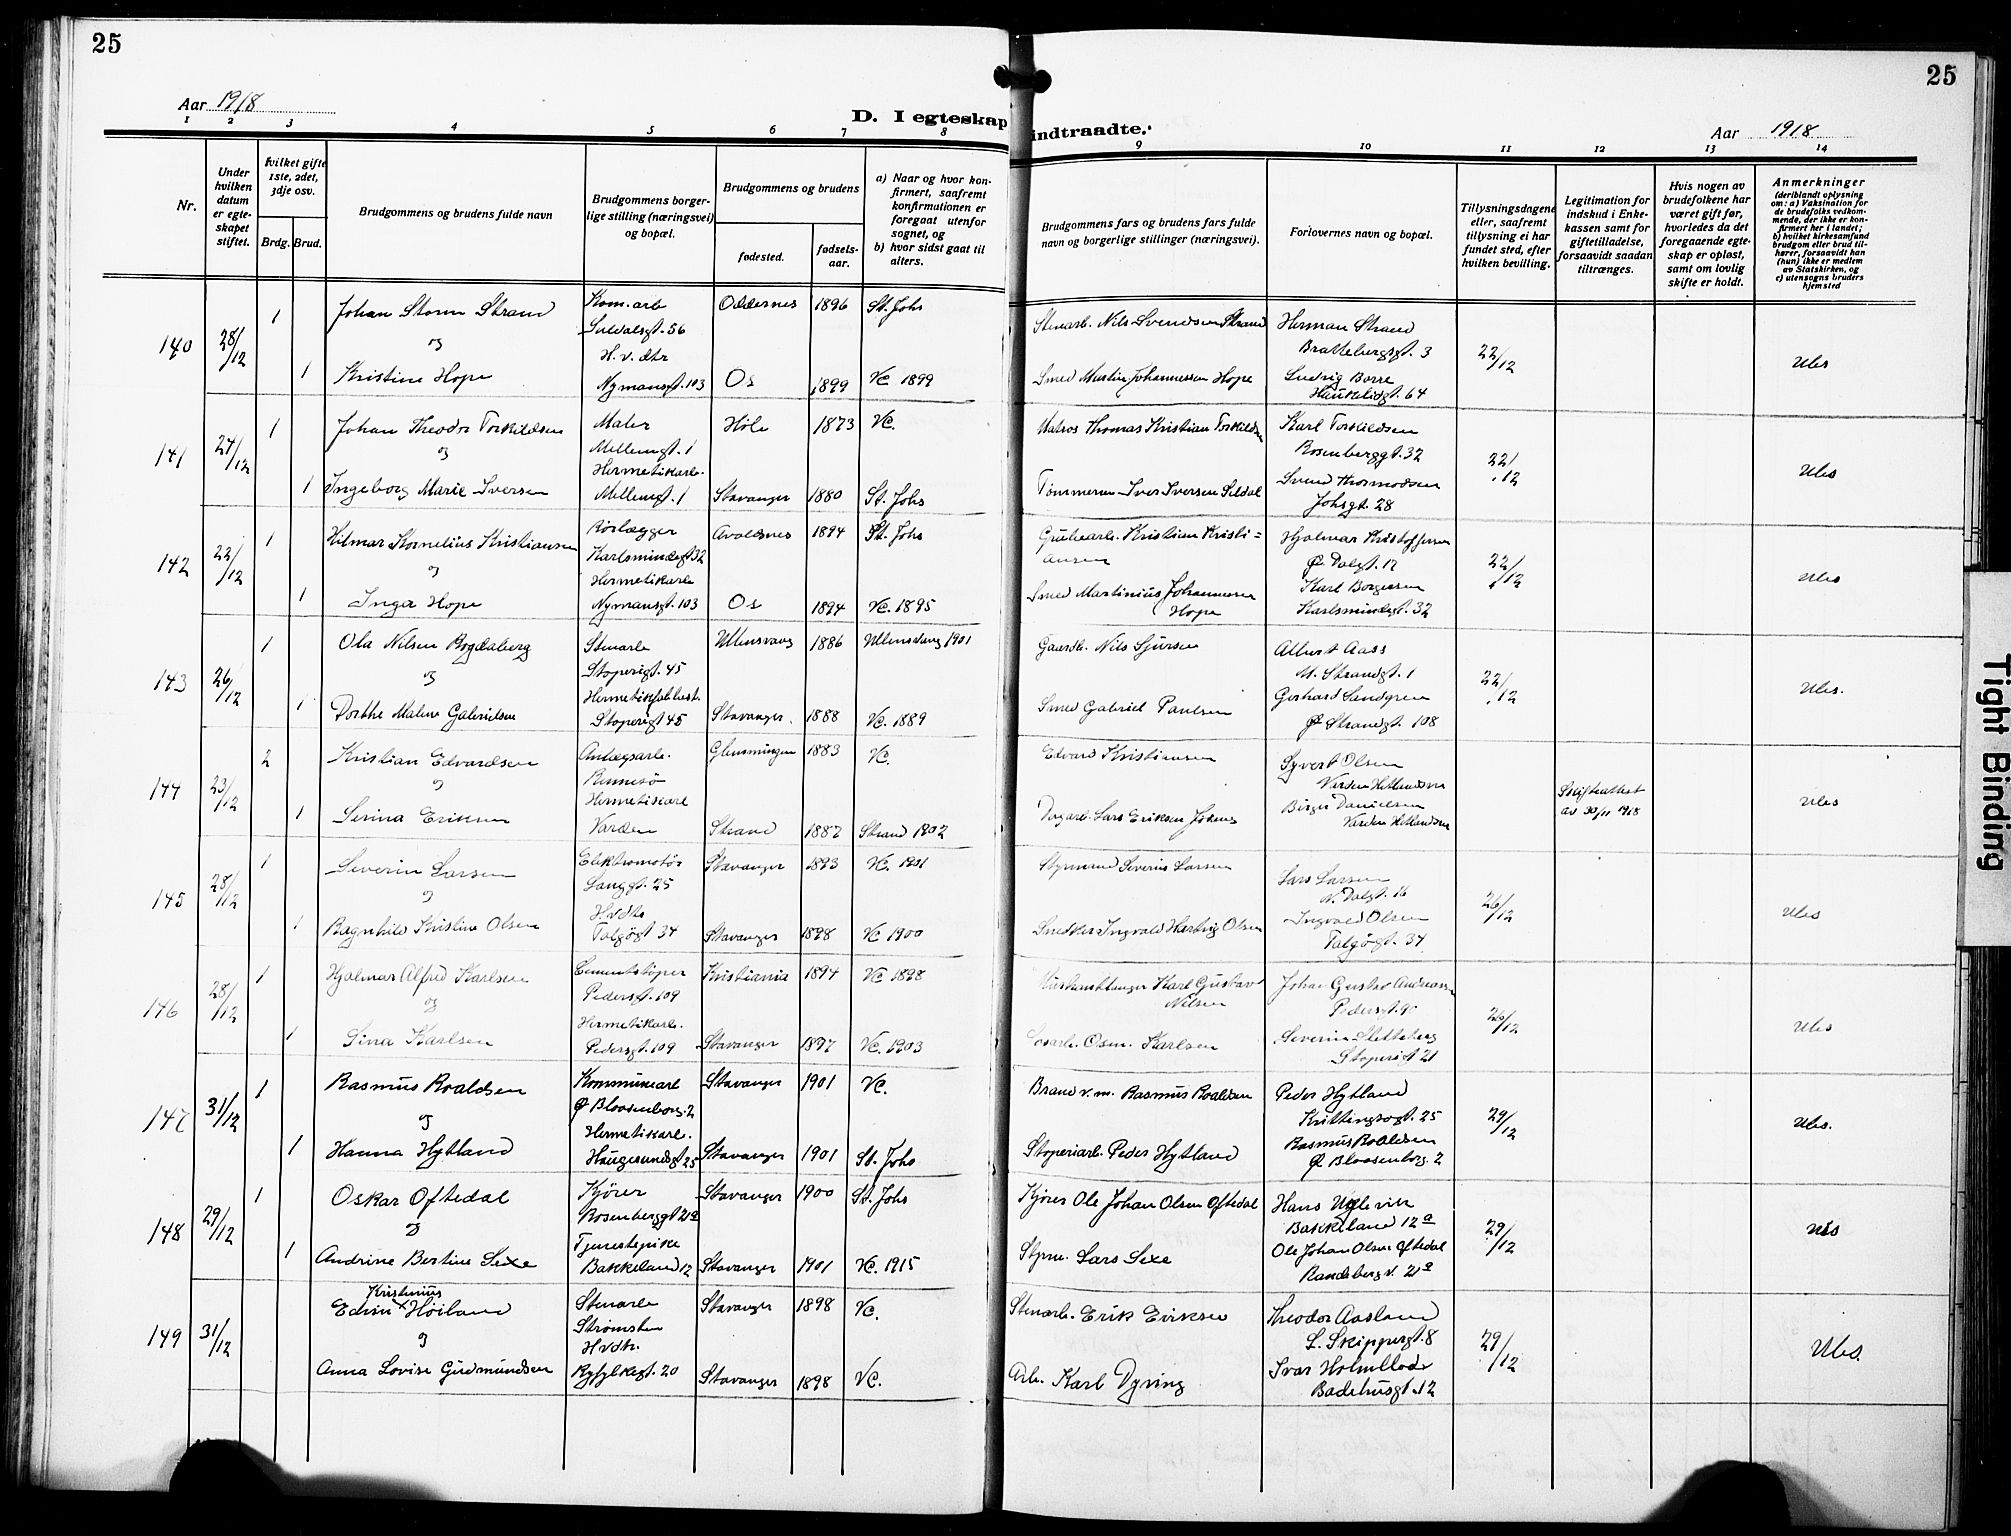 25
25
Aar 1918
D. I egteskap indtraadte.
Aar 1918
1 2 3 4 5 6 7 8 9 10 11 12 13 14
Nr.
Under hvilken datum er egteskapet stiftet.
hvilket gifte 1ste, 2det, 3dje osv.
Brdg. Brud.
Brudgommens og brudens fulde navn
Brudgommens borgerlige stilling (næringsvei) og bopæl.
Brudgommens og brudens
fødested.
fødselsaar.
a) Naar og hvor konfirmert, saafremt konfirmationen er foregaat utenfor sognet, og
b) hvor sidst gaat til alters.
Brudgommens fars og brudens fars fulde navn og borgerlige stillinger (næringsvei).
Forlovernes navn og bopæl.
Tillysningsdagene eller, saafremt tillysning ei har fundet sted, efter hvilken bevilling.
Legitimation for indskud i Enkekassen samt for giftetilladelse, forsaavidt saadan tiltrænges.
Hvis nogen av brudefolkene har været gift før, hvorledes da det foregaaende egteskap er opløst, samt om lovlig skifte er holdt.
Anmerkninger
(deriblandt oplysning om: a) Vaksination for de brudefolks vedkommende, der ikke er konfirmert her i landet; b) hvilket kirkesamfund brudgom eller brud tilhører, forsaavidt han (hun) ikke er medlem av Statskirken, og c) utensogns bruders hjemsted
140 28/12 1 Johan Storm Strand Kom. arb. Suldalsgt. 56 Oddernes 1896 St. Johs Stenarb. Nils Svendsen Strand Herman Strand Brattebergsgt. 3 22/12 Ubs
og
1 Kristine Hope H.v. dtr Nymansgt. 103 Os 1899 Vc 1899 Smed Martin Johannessen Hope Ludvig Borre Haukeligt. 64
141 27/12 1 Johan Theodor Torkildsen Maler Mellemgt. 1 Høle 1873 Vc. Matros Thomas Kristian Torkildsen Karl Torkildsen Rosenberggt. 32 22/12 Ubs
og
1 Ingeborg Marie Iversen Hermetikarb. Mellemgt. 1 Stavanger 1880 St. Johs Tømmerm Iver Iversen Svend Thormodsen Johsgt. 28
142 22/12 1 Hilmar Kornelius Kristiansen Rørlægger Karlsmindegt 32 Avaldsnes 1894 St. Johs Grubearb. Kristian Kristiansen Hjalmar Kristoffersen Ø. Dalgt. 17 22/12 Ubs
og
1 Inga Hope Hermetikarb Nymansgt. 103 Os 1894 Vc. 1895 Smed Martinius Johannesen Hope Karl Borgersen Karlsmindegt. 32
143 26/12 1 Ola Nilsen Stenarb Støperigt. 45 Ullensvang 1886 Ullensvang 1901 Gaardb. Nils Sjursen Albert Aass N. Strandgt. 1 22/12 Ubs.
og
1 Dorthe Malene Gabrielsen Støperigt 45 Stavanger. 1888 Vc. 1889 Smed Gabriel Paulsen Gerhard Sandgren Ø Strandgt. 108
144 23/12 2 Kristian Edvardsen Anlægsarb. Rennesø 1883 Vc. Edvard Kristiansen Syvert Olsen Varden Hetlandsm Skifteattest av 30/11 1918 Ubs
og
1 Serina Eriksen Hermetikarb Varden Strand 1887 Strand 1902 Dagarb. Lars Eriksen Birger Danielsen Varden Hetlandsm
145 28/12 1 Severin Larsen Langgt. 25 Stavanger 1893 Vc. 1901 Styrmand Severin Larsen Lars Larsen N. Dalgt. 16 26/12 Ubs
og
1 Ragnhild Kristine Olsen Hvdtr Talgøgt 34 Stavanger 1898 Vc 1900 Snedker Ingvald Hartvig Olsen Ingvald Olsen Talgøgt. 34
146 28/12 1 Hjalmar Alfred Karlsen Cementstøper Pedersgt. 109 Kristiania 1894 Vc 1898 Karl Gustav Nilsen Johan Gustav Andreassen 26/12 Ubs
og
1 Sina Karlsen Hermetikarb. Pedersgt. 109 Stavanger 1897 Vc. 1903 Karlsen Severin Sletteberg Støperigt 21
147 31/12 1 Rasmus Roaldsen Kommunearb Ø Blaasenborg. 2 Stavanger 1901 Vc. Brand v. m. Rasmus Roaldsen Peder Hytland 29/12 Ubs.
og
1 Hanna Hytland Hermetikarb. Haugesundgt 25 Stavanger 1901 St. Johs Støperiarb. Peder Hytland Rasmus Roaldsen Ø Blaasenborg. 2
148 29/12 1 Oskar Oftedal Kjører Rosenberggt 21a Stavanger 1900 St. Johs Kjører Ole Johan Olsen Oftedal Hans Uglevik Bakkeland 12a 29/12 Ubs
og
1 Andrine Bertine Sexe Tjenestepike Bakkeland 12 Stavanger 1901 Vc. 1915 Styrm. Lars Sexe Ole Johan Olsen Oftedal
149 31/12 Edvin Kristinius Høiland Stenarb Strømsten Stavanger 1898 Vc. Stenarb. Erik Eriksen Theodor Aasland L. Skippergt. 8 29/12 Ubs.
og
Anna Lovise Gudmundsen Hvdtr. Ryfylkegt. 20 Stavanger 1898 Vc. Arb. Karl Dyring Ivar Badehusgt. 12
Tight Binding